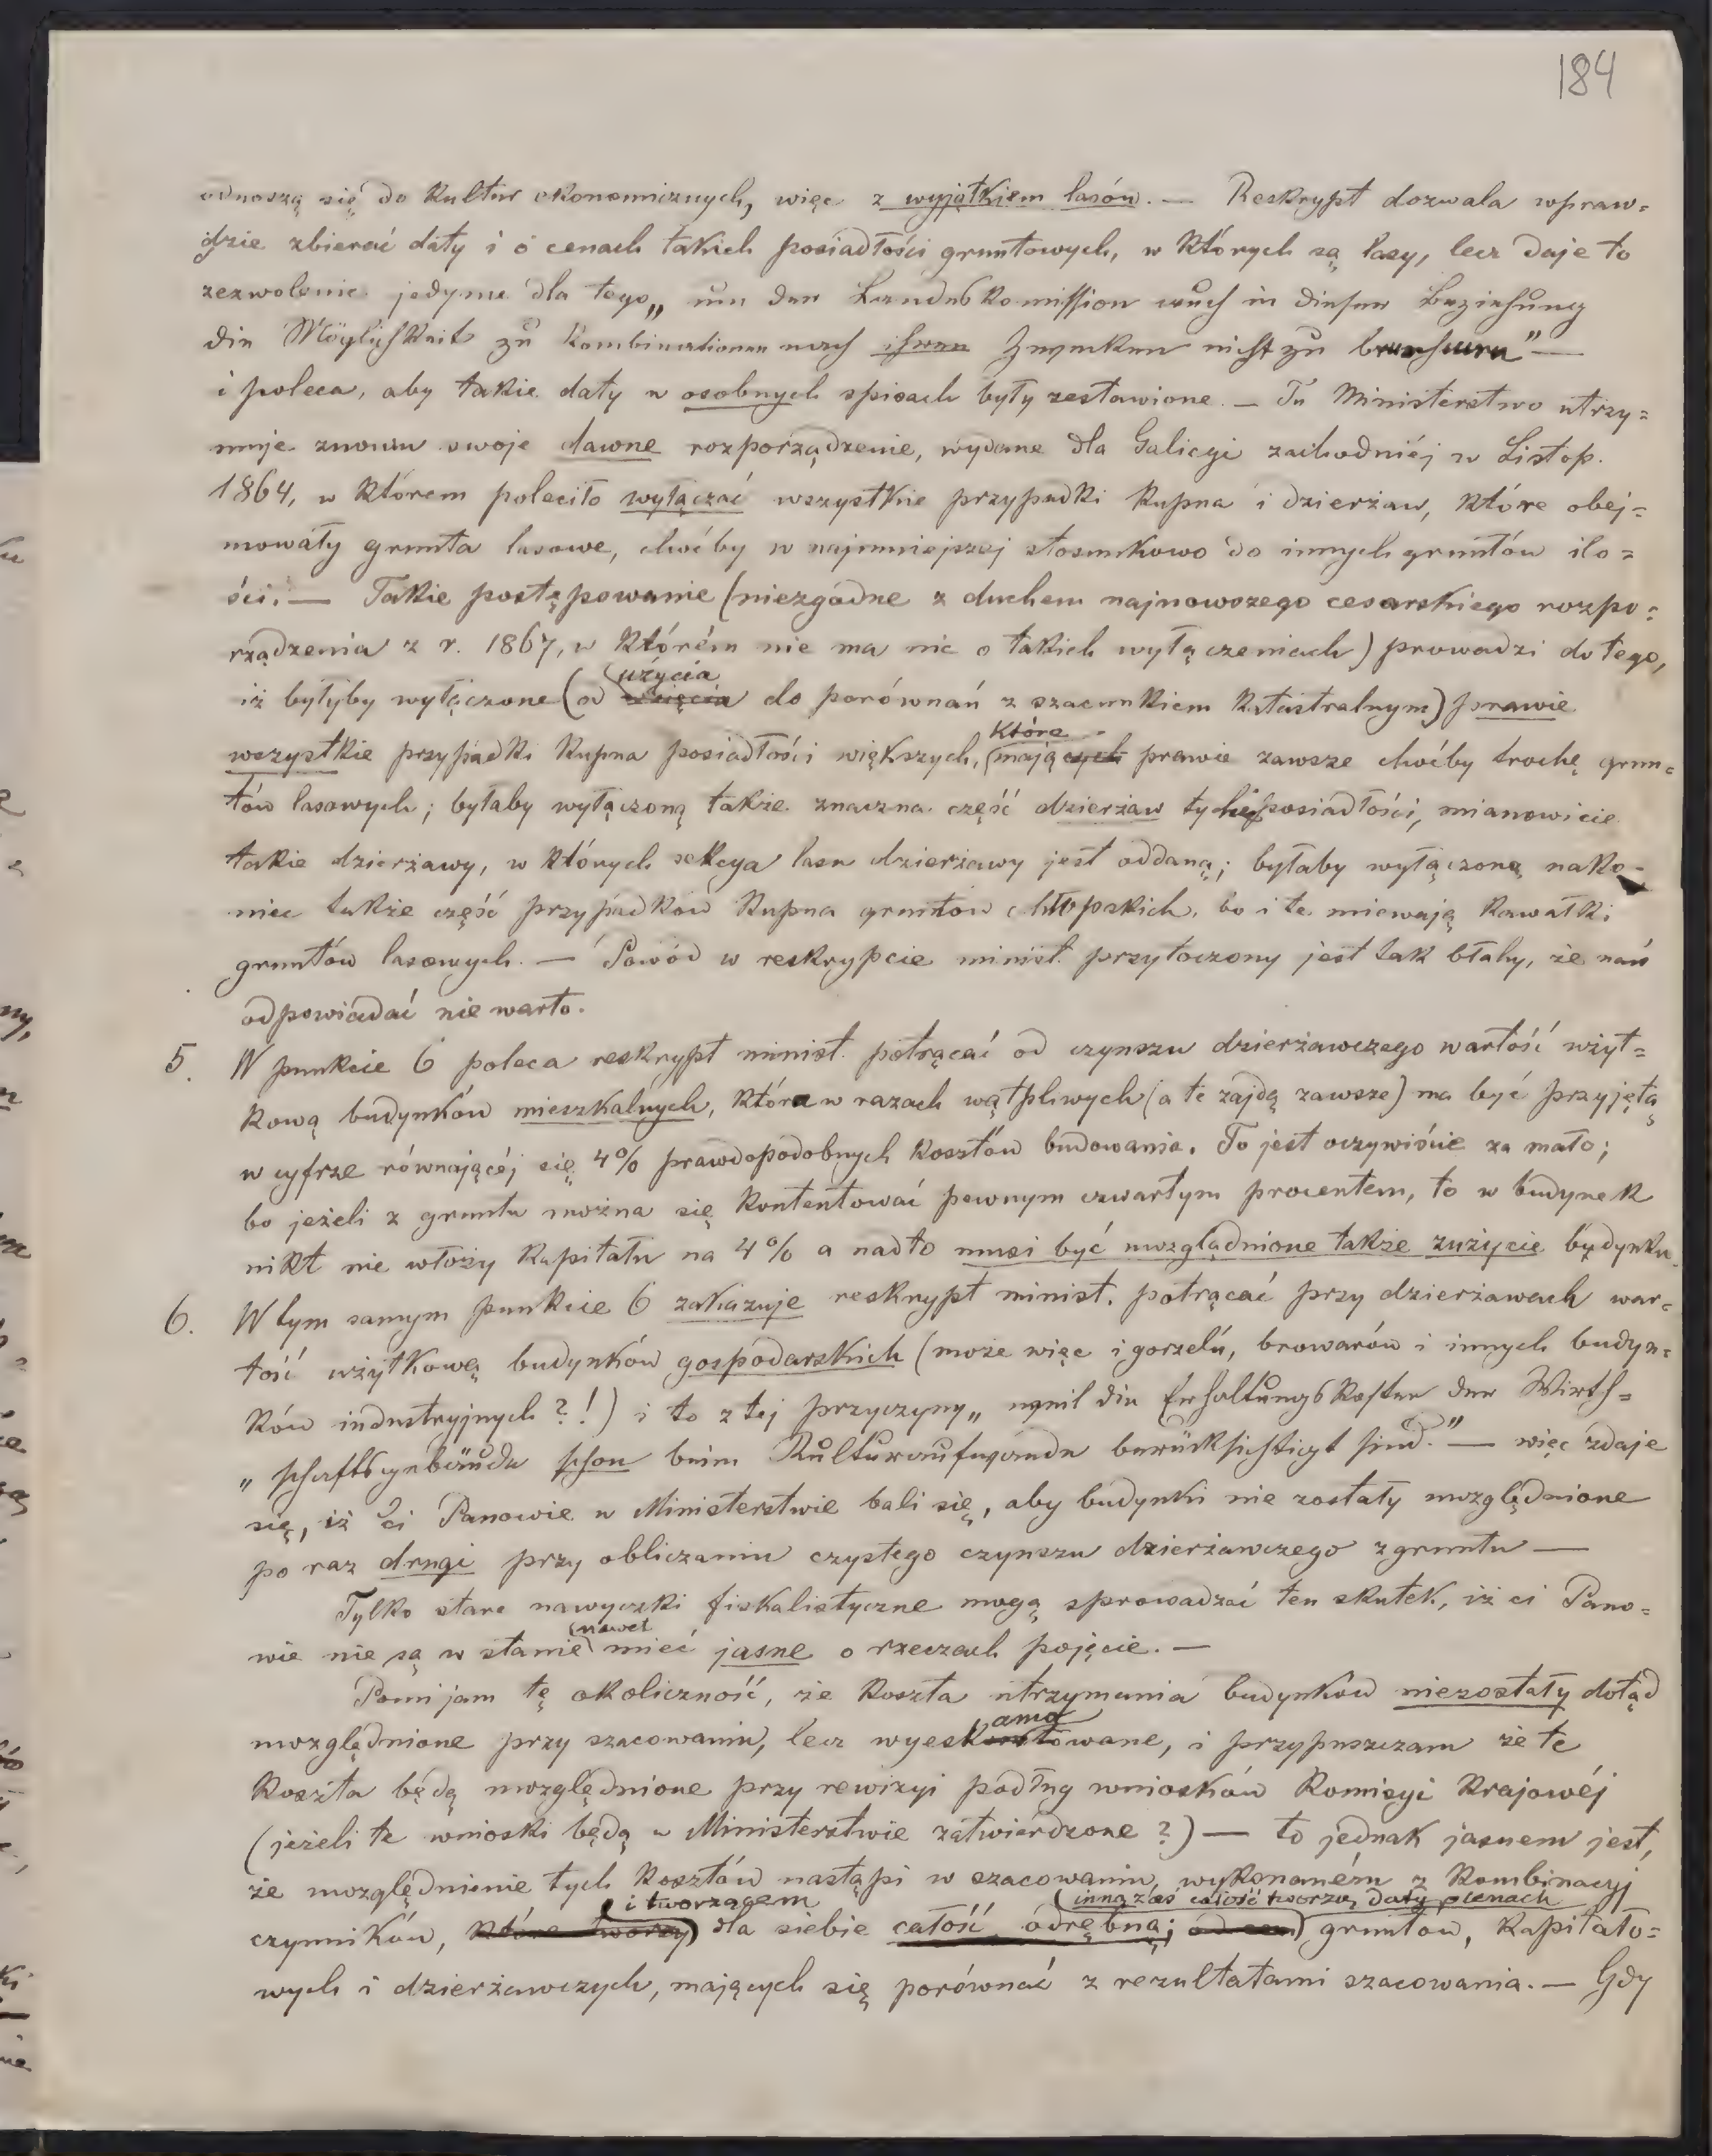 184
odnoszą się do kultur ekonomicznych, więc z wyjątkiem lasów. — Reskrypt dozwala wpraw=
dzie zbierać daty i o cenach takich posiadłości gruntowych, w których są lasy, lecz daje to
zezwolenie jedynie dla tego „um der Landeskomission auch in dieser Beziehung
die Möglichkeit zu Kombinationen nach ihren Zwecken nicht zu benehmen" —
i poleca, aby takie daty w osobnych spisach były zestawione. — Tu Ministerstwo utrzy=
muje znowu swoje dawne rozporządzenie, wydane dla Galicyi zachodniéj w Listop.
1864, w którem poleciło wyłączać wszystkie przypadki kupna i dzierżaw, które obej=
mowały grunta lasowe, choćby w najmniejszej stosunkowo do innych gruntów ilo=
ści. — Takie postępowanie (niezgodne z duchem najnowszego cesarskiego rozpo=
rządzenia z r. 1867, w którém nie ma nic o takich wyłączeniach) prowadzi do tego,
użycia
iż byłyby wyłączone (od wzięcia do porównań z szacunkiem katastralnym) prawie
które
wszystkie przypadki kupna posiadłości większych, mających prawie zawsze choćby trochę grun=
tów lasowych; byłaby wyłączoną także znaczna część dzierżaw tychże posiadłości, mianowicie
takie dzierżawy, w których sekcya lasu dzierżawy jest oddaną; byłaby wyłączoną nako=
niec także część przypadków kupna gruntów chłopskich, bo i te miewają kawałki
gruntów lasowych. — Powód w reskrypcie minist. przytoczony jest tak błahy, że nań
odpowiadać nie warto.
5. W punkcie 6 poleca reskrypt minist. potrącać od czynszu dzierżawczego wartość użyt=
kową budynków mieszkalnych, która w razach wątpliwych (a te zajdą zawsze) ma być przyjętą
w cyfrze równającéj się 4% prawdopodobnych kosztów budowania. To jest oczywiście za mało;
bo jeżeli z gruntu można się kontentować pewnym czwartym procentem, to w budynek
nikt nie włoży kapitału na 4% a nadto musi być uwzględnione także zużycie budynku.
6. W tym samym punkcie 6 zakazuje reskrypt minist. potrącać przy dzierżawach war=
tość użytkową budynków gospodarskich (może więc i gorzelń, browarów i innych budyn=
ków industryjnych?!) i to z tej przyczyny „weil die Erhaltungskosten der Wirth=
„schaftsgebäude schon beim Kulturaufwande berücksichtigt sind." — więc zdaje
się, iż ci Panowie w Ministerstwie bali się, aby budynki nie zostały uwzględnione
po raz drugi przy obliczaniu czystego czynszu dzierżawczego z gruntu —
Tylko stare nawyczki fiskalistyczne mogą sprowadzać ten skutek, iż ci Pano=
nawet
wie nie są w stanie mieć jasne o rzeczach pojęcie. —
Pomijam tę okoliczność, że koszta utrzymania budynków niezostały dotąd
amo
uwzględnione przy szacowaniu, lecz wyeskontowane, i przypuszczam że te
koszta będą uwzględnione przy rewizyi podług wniosków Komisyi krajowéj
(jeżeli te wnioski będą w Ministerstwie zatwierdzone?) — to jednak jasnem jest,
że uwzględnienie tych kosztów nastąpi w szacowaniu, wykonaném z kombinacyj
i tworzącem inną zaś całość tworzą daty o cenach
czynników, które tworzy dla siebie całość odrębną; od cen gruntów, kapitało=
wych i dzierżawczych, mających się porównać z rezultatami szacowania. — Gdy